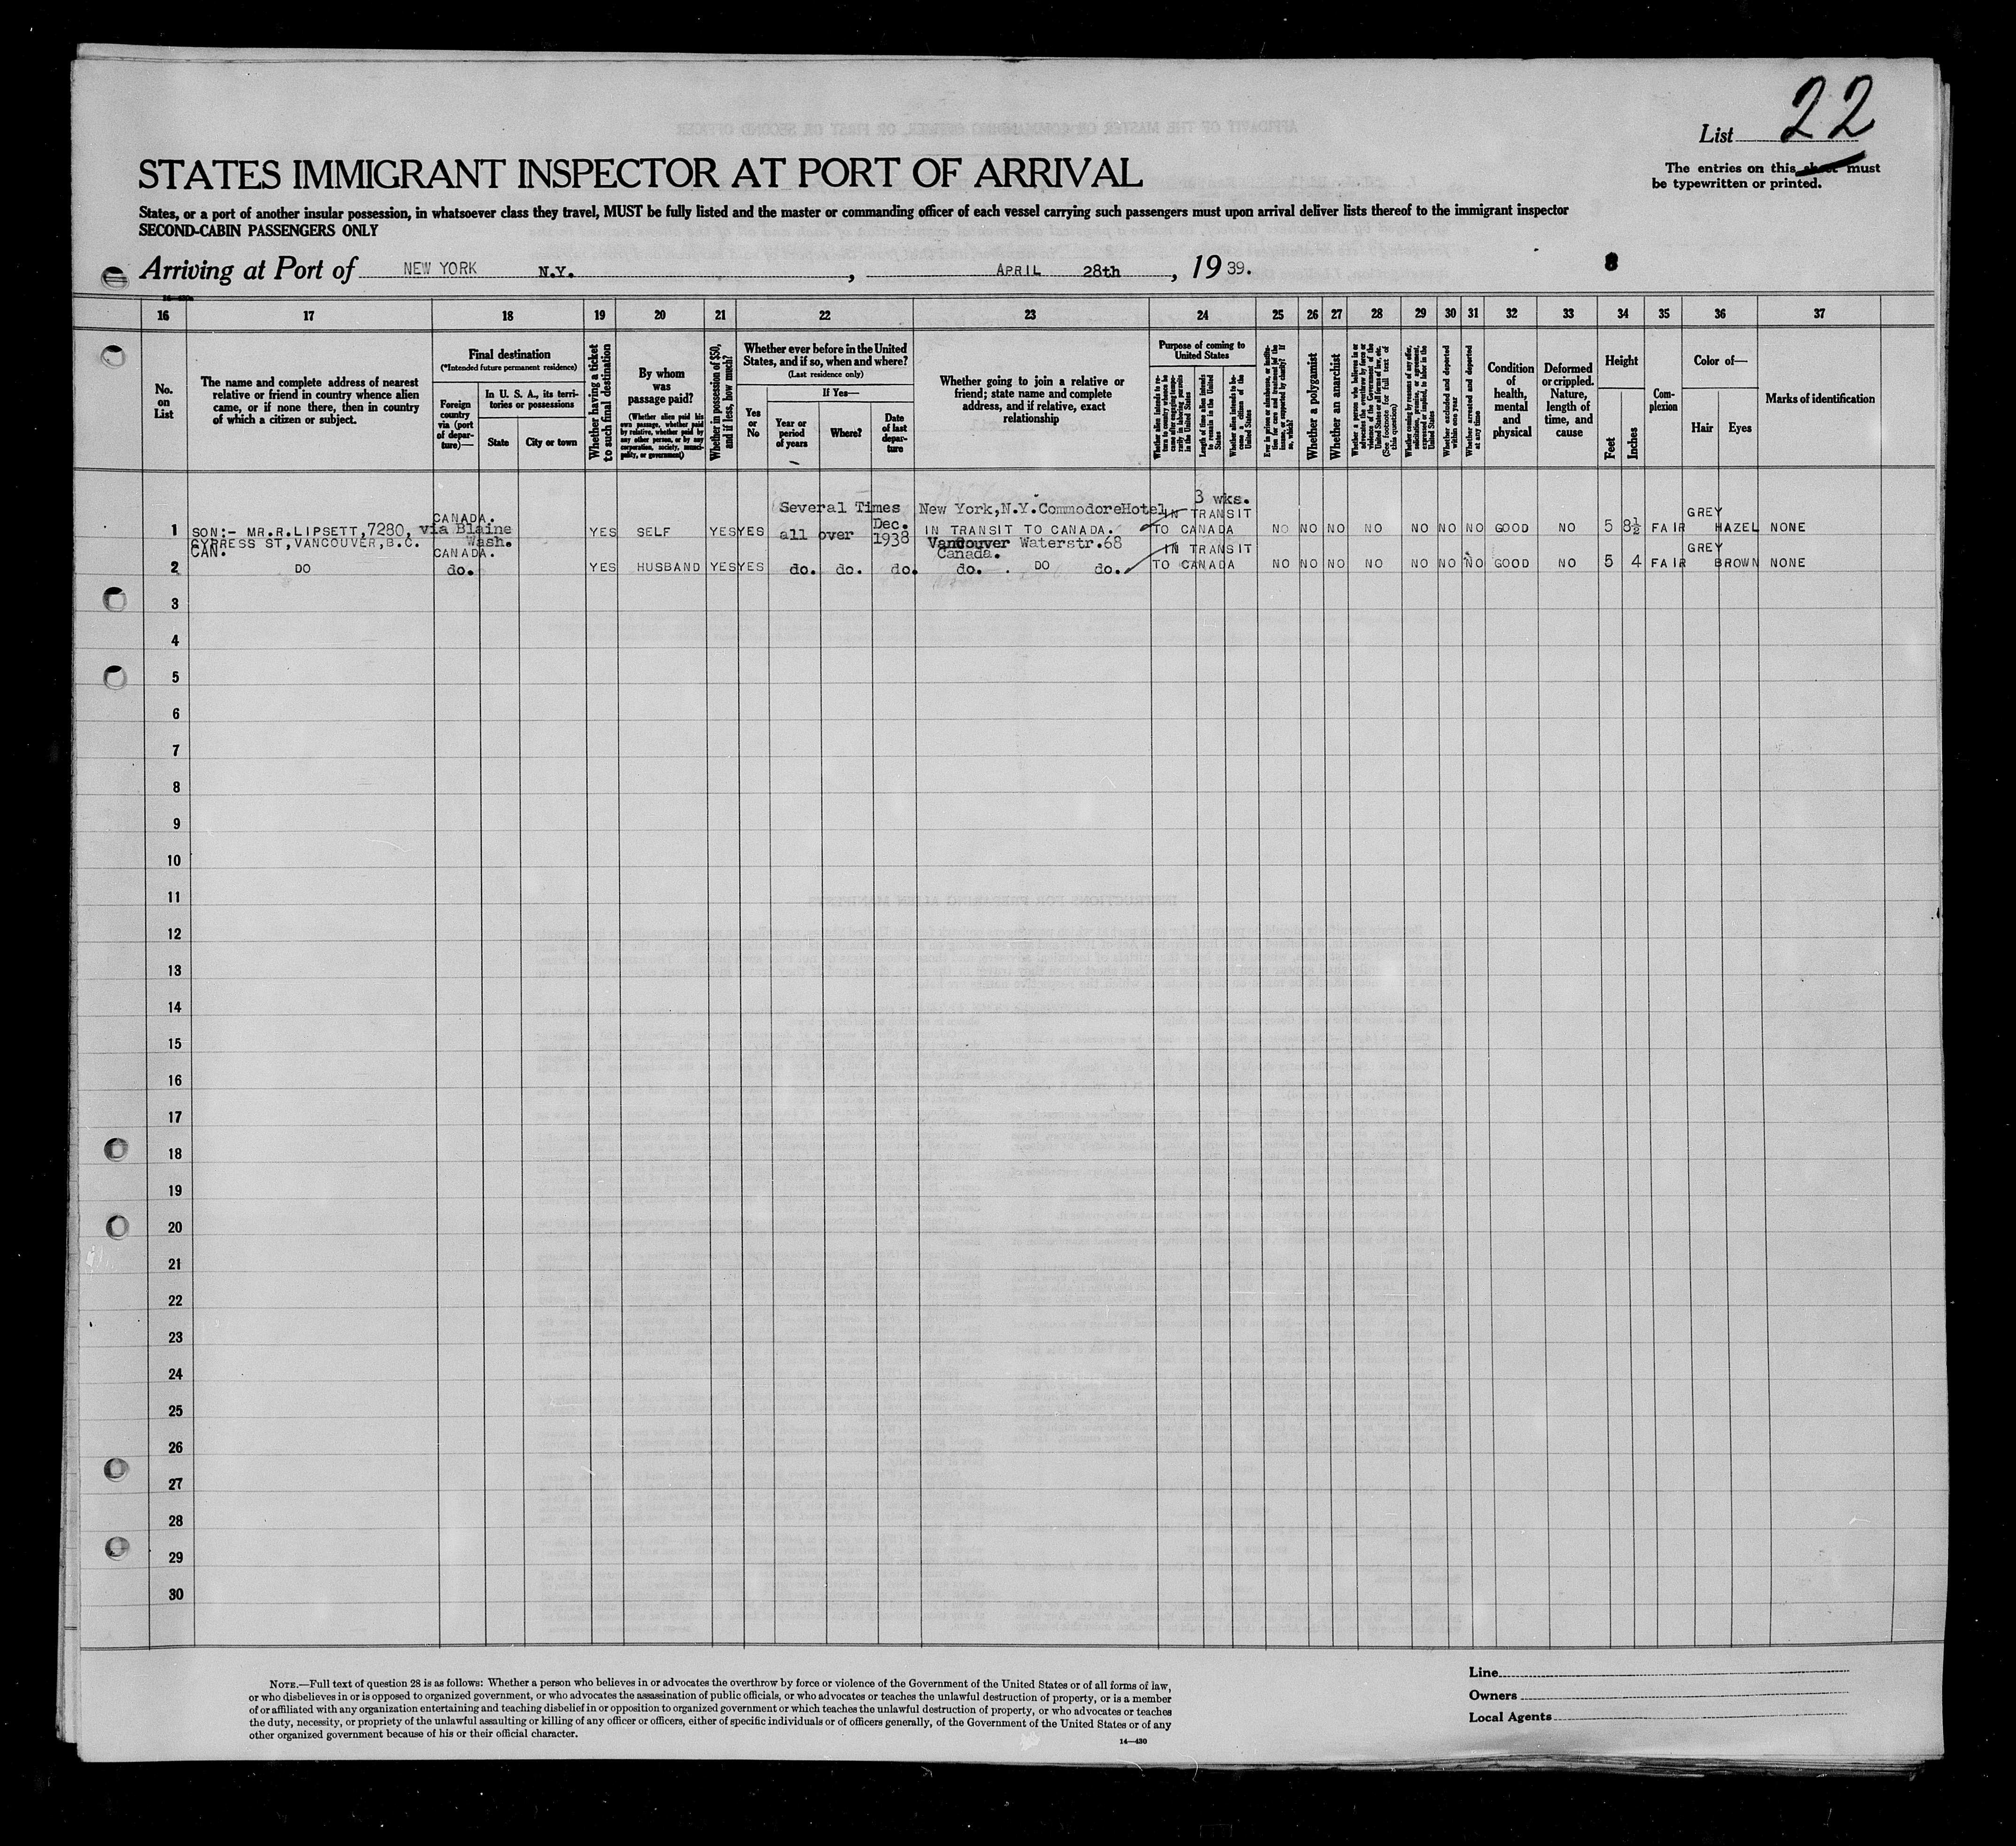 List 22
The entries on this sheet must
be typewritten or printed.
STATES IMMIGRANT INSPECTOR AT PORT OF ARRIVAL
States, or a port of another insular possession, in whatsoever class they travel, MUST be fully listed and the master or commanding officer of each vessel carrying such passengers must upon arrival deliver lists thereof to the immigrant inspector
SECOND-CABIN PASSENGERS ONLY
Arriving at Port of NEW YORK N.Y. , APRIL 28th , 19 39.
16 17 18 19 20 21 22 23 24 25 26 27 28 29 30 31 32 33 34 35 36 37
No.
on
List
The name and complete address of nearest
relative or friend in country whence alien
came, or if none there, then in country
of which a citizen or subject.
Final destination
(*Intended future permanent residence)
Foreign
country
via (port
of depar-
ture)—
In U. S. A., its terri-
tories or possessions
State
City or town
Whether having a ticket
to such final destination
By whom
was
passage paid?
(Whether alien paid his
own passage, whether paid
by relative, whether paid by
any other person, or by any
corporation, society, munici-
pality, or government)
Whether in possession of $50,
and if less, how much?
Whether ever before in the United
States, and if so, when and where?
(Last residence only)
Yes
or
No
If Yes—
Year or
period
of years
Where?
Date
of last
depar-
ture
Whether going to join a relative or
friend; state name and complete
address, and if relative, exact
relationship
Purpose of coming to
United States
Whether alien intends to re-
turn to country whence he
came after engaging tempo-
rarily in laboring pursuits
in the United States
Length of time alien intends
to remain in the United
States
Whether alien intends to be-
come a citizen of the
United States
Ever in prison or almshouse, or institu-
tion for care and treatment of the
insane, or supported by charity? If
so, which?
Whether a polygamist
Whether an anarchist
Whether a person who believes in or
advocates the overthrow by force or
violence of the Government of the
United States or all forms of law, etc.
(See footnote for full text of
this question)
Whether coming by reason of any offer,
solicitation, promise, or agreement,
expressed or implied, to labor in the
United States
Whether excluded and deported
within one year
Whether arrested and deported
at any time
Condition
of
health,
mental
and
physical
Deformed
or crippled.
Nature,
length of
time, and
cause
Height
Feet
Inches
Com-
plexion
Color of—
Hair
Eyes
Marks of identification
Several Times New York,N.Y.CommodoreHotel 3 wks.
CANADA. Dec. IN TRANSIT GREY
1 SON:- MR.R.LIPSETT,7280, via Blaine YES SELF YES YES all over 1938 IN TRANSIT TO CANADA. TO CANADA NO NO NO NO NO NO NO GOOD NO 5 8½ FAIR HAZEL NONE
CYPRESS ST,VANCOUVER,B.C. Wash. Vancouver Waterstr.68
CAN. CANADA. Canada. IN TRANSIT GREY
2 DO do. YES HUSBAND YES YES do. do. do. do. DO do. TO CANADA NO NO NO NO NO NO NO GOOD NO 5 4 FAIR BROWN NONE
3
4
5
6
7
8
9
10
11
12
13
14
15
16
17
18
19
20
21
22
23
24
25
26
27
28
29
30
NOTE.—Full text of question 28 is as follows: Whether a person who believes in or advocates the overthrow by force or violence of the Government of the United States or of all forms of law,
or who disbelieves in or is opposed to organized government, or who advocates the assassination of public officials, or who advocates or teaches the unlawful destruction of property, or is a member
of or affiliated with any organization entertaining and teaching disbelief in or opposition to organized government or which teaches the unlawful destruction of property, or who advocates or teaches
the duty, necessity, or propriety of the unlawful assaulting or killing of any officer or officers, either of specific individuals or of officers generally, of the Government of the United States or of any
other organized government because of his or their official character.
14—430
Line
Owners
Local Agents